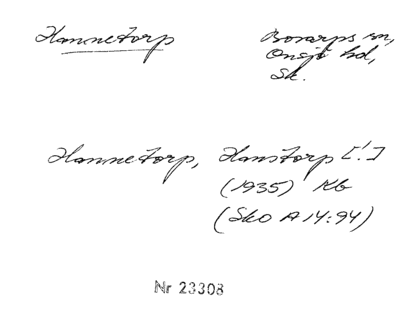 Hannetorp
Bosarps sn,
Onsjö hd,
Sk.
Hannetorp, Hanstorp [!]
(1935) Kb
(SkO A 14:94)
Nr 23308